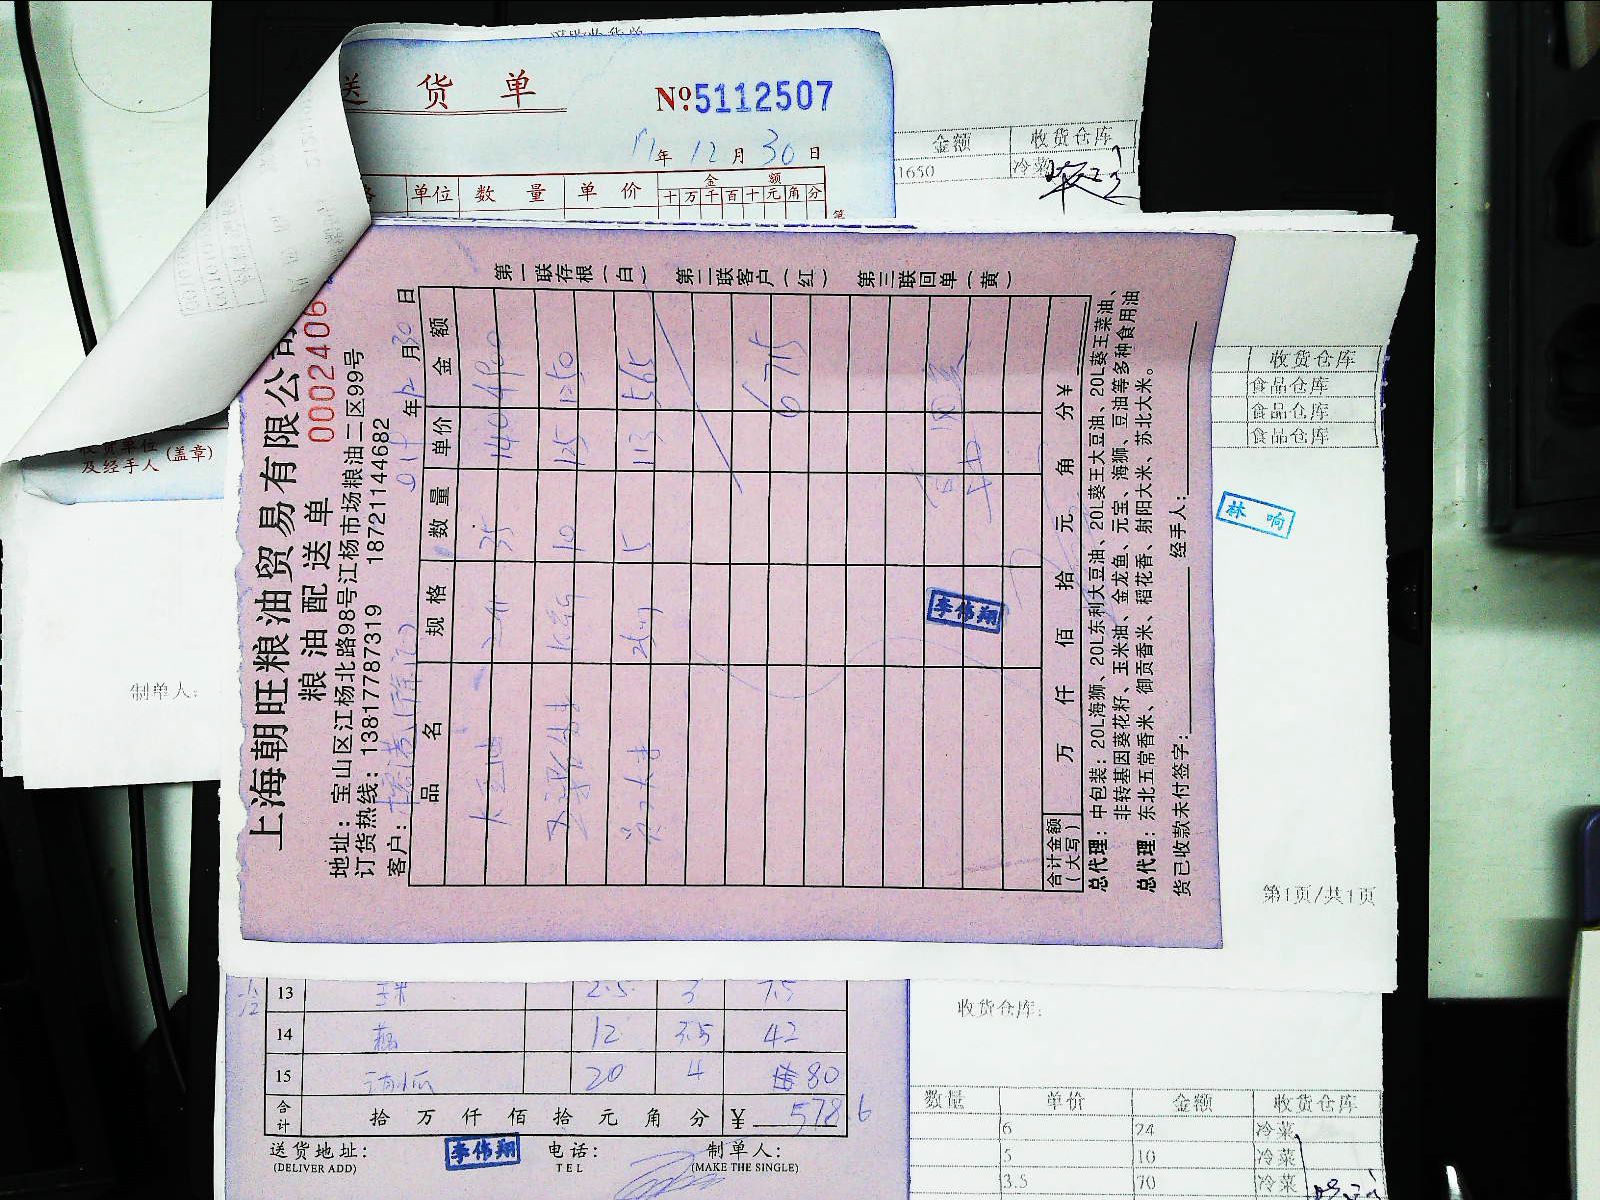 送 货 单
№5112507
11年12月30日
单位 数 量 单 价 金 额
十万千百十元角分
金额 收货仓库
1650 冷菜
上海朝旺粮油贸易有限公司
粮油配送单 0002406
地址：宝山区江杨北路98号江杨市场粮油二区99号
订货热线：13817787319 18721144682
客户： 年12月30日
品 名 规 格 数 量 单价 金 额
大豆油 35 140 4900
10 125 1250
5 113 565
6715
合计金额（大写） 万 仟 佰 拾 元 角 分￥
总代理：中包装：20L海狮、20L东利大豆油、20L葵王大豆油、20L葵王菜油、
非转基因葵花籽、玉米油、金龙鱼、元宝、海狮、豆油等多种食用油
总代理：东北五常香米、御贡香米、稻花香、射阳大米、苏北大米。
货已收款未付签字： 经手人：
第一联存根（白） 第二联客户（红） 第三联回单（黄）
李伟翔
收货单位
及经手人（盖章）
制单人：
收货仓库
食品仓库
食品仓库
食品仓库
林 响
第1页/共1页
13 2.5 3 7.5
14 藕 12 3.5 42
15 20 4 80
合计 拾 万 仟 佰 拾 元 角 分 ￥ 578.6
送货地址： 李伟翔 电话： 制单人：
(DELIVER ADD) TEL (MAKE THE SINGLE)
收货仓库：
数量 单价 金额 收货仓库
6 24 冷菜
5 10 冷菜
3.5 70 冷菜